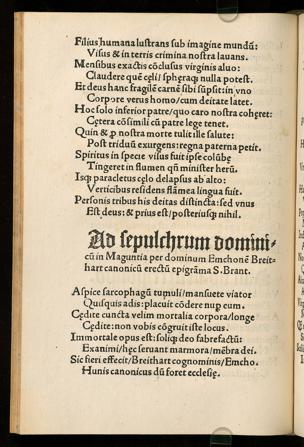 Filius humana lustrans sub imagine mundū:
Visus & in terris crimina nostra lauans.
Mensibus exactis cōclusus virginis aluo:
Claudere quē cęli/ spheraq; nulla potest.
Et deus hanc fragilē carnē sibi sūpsit: in vno
Corpore verus homo/ cum deitate latet.
Hoc solo inferior patre/ quo caro nostra cohęret:
Cętera cōsimili cū patre lege tenet.
Quin & ꝓ nostra morte tulit ille salute:
Post triduū exurgens: regna paterna petit.
Spiritus in specie visus fuit ipse colūbę
Tingeret in flumen qn̄ minister herū.
Isq; paracletus cęlo delapsus ab alto:
Verticibus residens flāmea lingua fuit.
Personis tribus his deitas distīcta: sed vnus
Est deus: & prius est/ posteriusq; nihil.
Ad sepulchrum domini-
cū in Maguntia per dominum Emchonē Breit-
hart canonicū erectū epigrāma S. Brant.
Aspice sarcophagū tumuli/ mansuete viator
Quisquis adis: placuit cōdere nup cum.
Cędite cuncta velim mortalia corpora/ longe
Cędite: non vobis cōgruit iste locus.
Immortale opus est: soliq; deo fabrefactū:
Exanimi/ hęc seruant marmora/ mēbra dei.
Sic fieri effecit/ Breithart cognominis/ Emcho.
Hunis canonicus dū foret ecclesię.